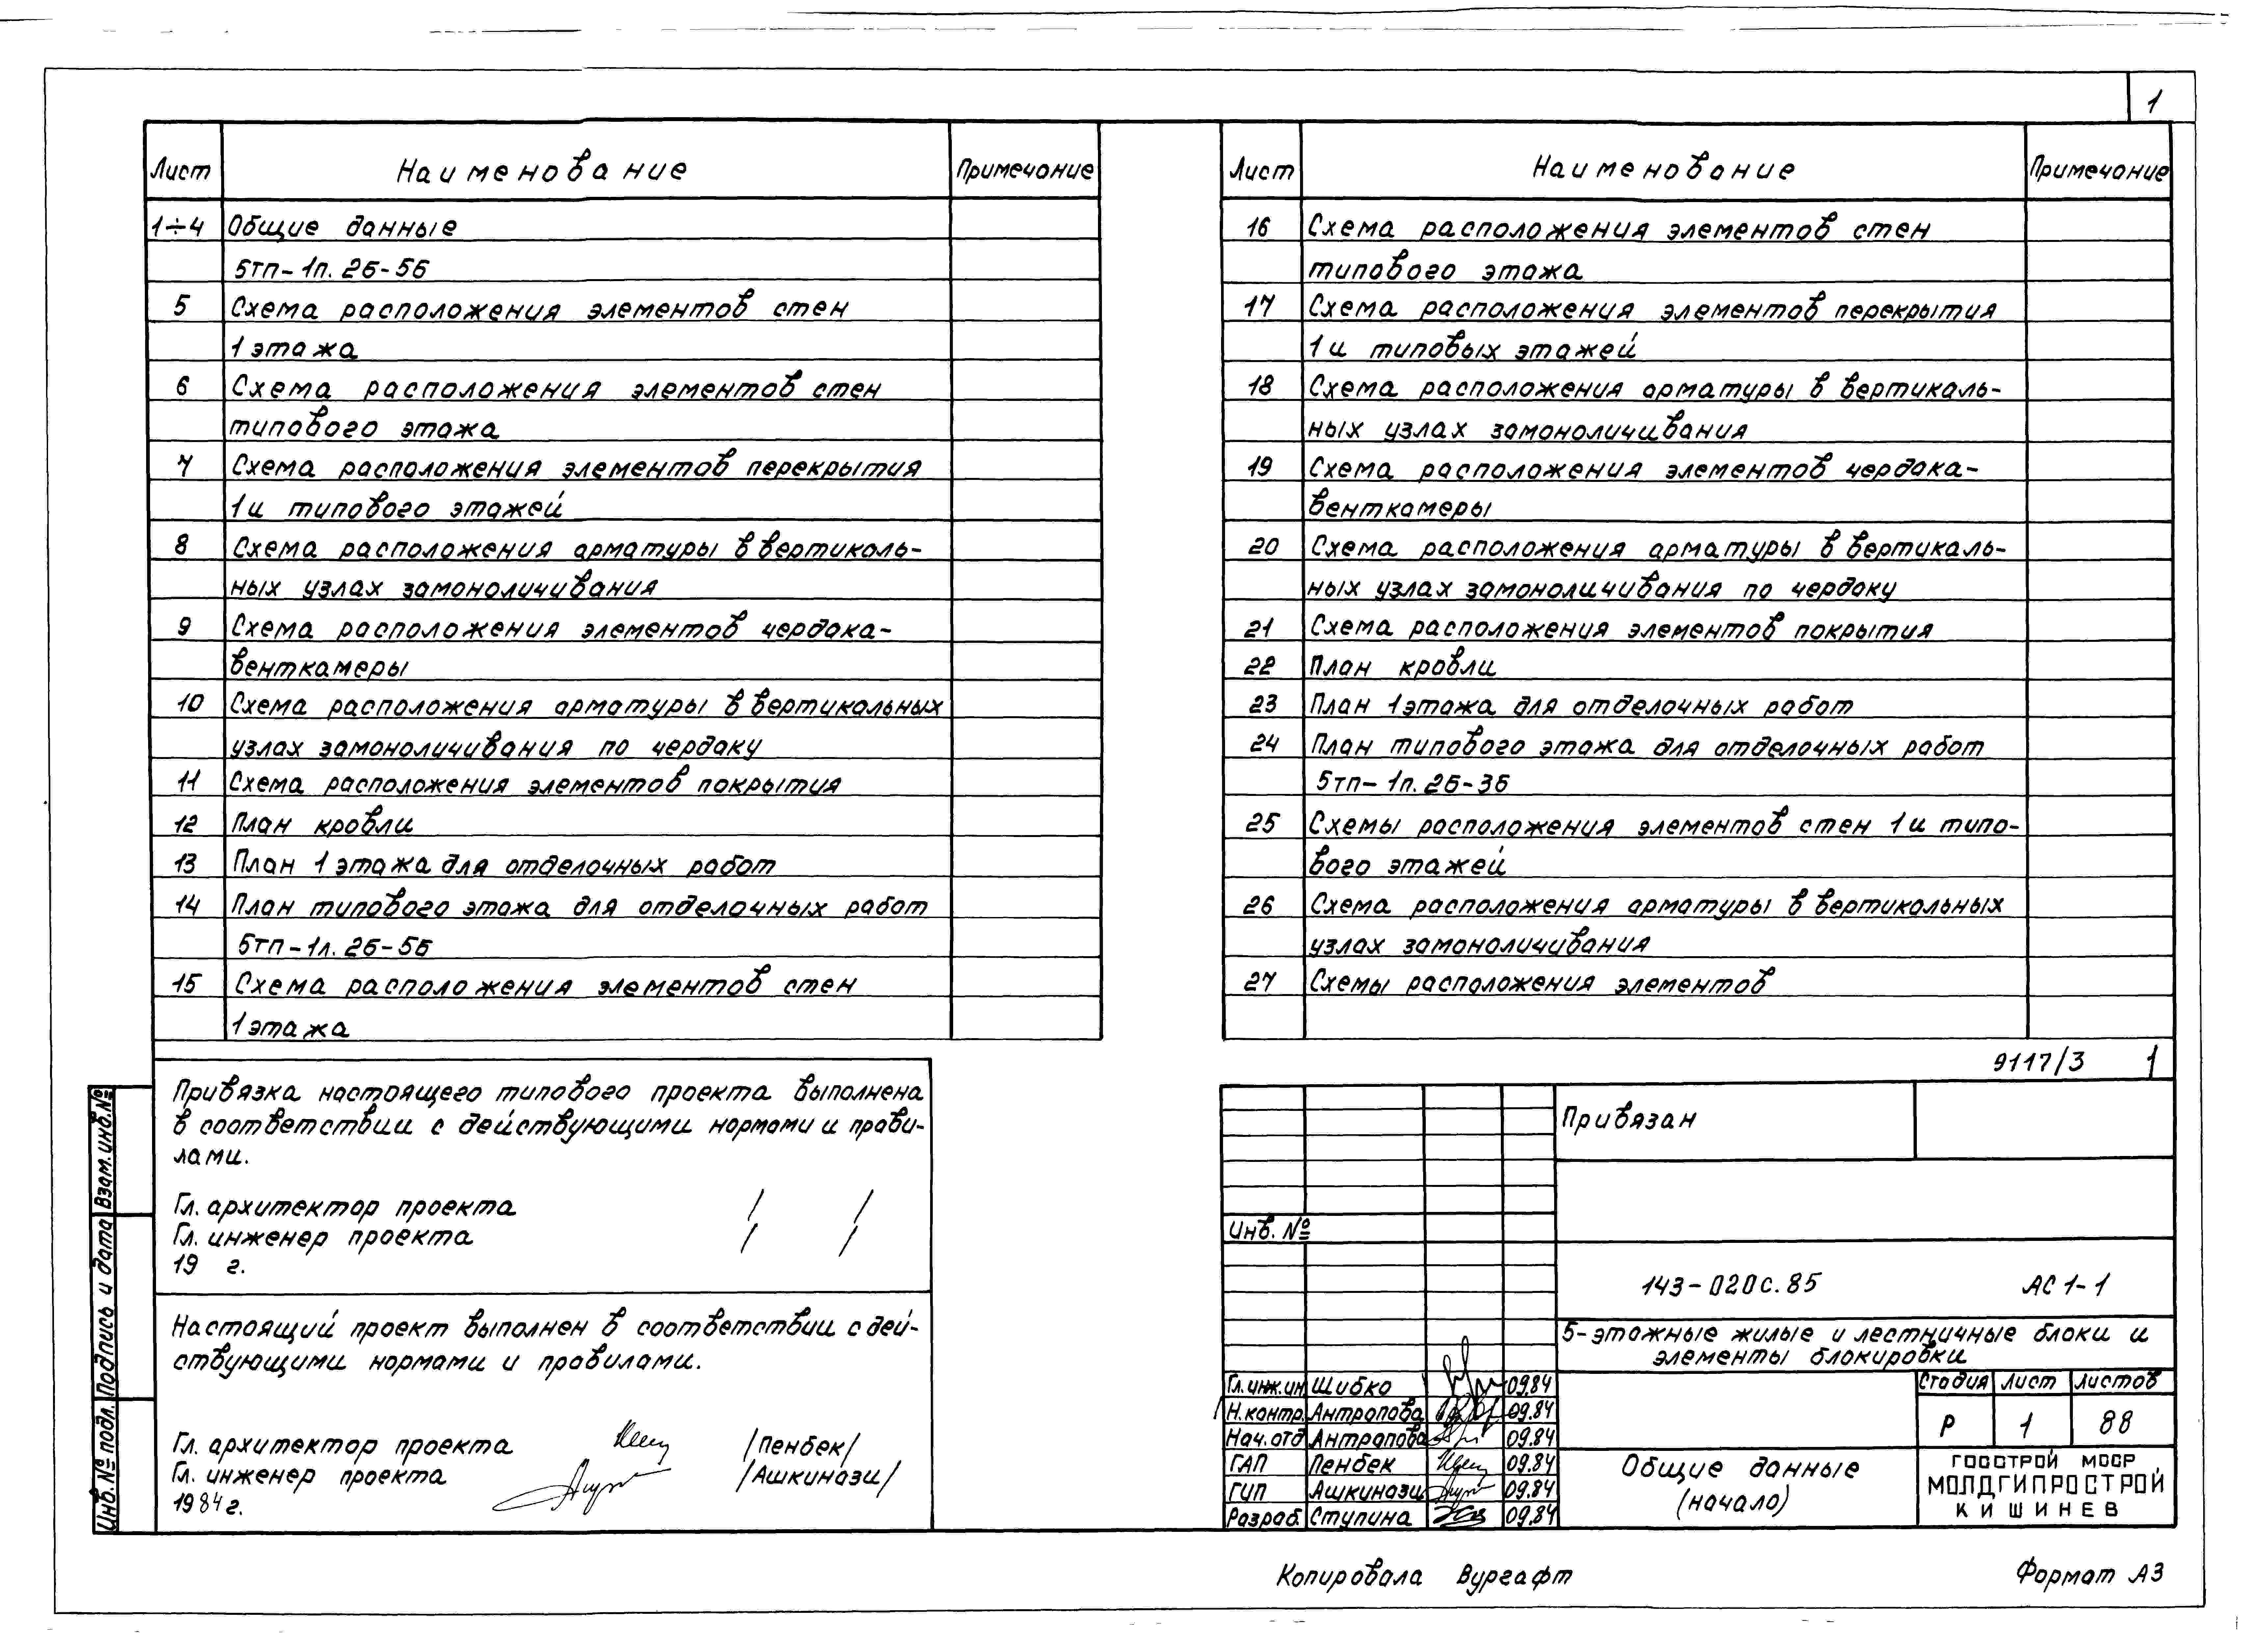 1
Лист Наименование Примечание
1÷4 Общие данные
5тп-1п.2Б-5Б
5 Схема расположения элементов стен
1 этажа
6 Схема расположения элементов стен
типового этажа
7 Схема расположения элементов перекрытия
1 и типового этажей
8 Схема расположения арматуры в вертикаль-
ных узлах замоноличивания
9 Схема расположения элементов чердака-
венткамеры
10 Схема расположения арматуры в вертикальных
узлах замоноличивания по чердаку
11 Схема расположения элементов покрытия
12 План кровли
13 План 1 этажа для отделочных работ
14 План типового этажа для отделочных работ
5тп-1л.2Б-5Б
15 Схема расположения элементов стен
1 этажа
Лист Наименование Примечание
16 Схема расположения элементов стен
типового этажа
17 Схема расположения элементов перекрытия
1 и типовых этажей
18 Схема расположения арматуры в вертикаль-
ных узлах замоноличивания
19 Схема расположения элементов чердака-
венткамеры
20 Схема расположения арматуры в вертикаль-
ных узлах замоноличивания по чердаку
21 Схема расположения элементов покрытия
22 План кровли
23 План 1 этажа для отделочных работ
24 План типового этажа для отделочных работ
5тп-1п.2Б-3Б
25 Схемы расположения элементов стен 1 и типо-
вого этажей
26 Схема расположения арматуры в вертикальных
узлах замоноличивания
27 Схемы расположения элементов
9117/3 1
Привязка настоящего типового проекта выполнена
в соответствии с действующими нормами и прави-
лами.
Гл. архитектор проекта / /
Гл. инженер проекта / /
19 г.
Настоящий проект выполнен в соответствии с дей-
ствующими нормами и правилами.
Гл. архитектор проекта /Пенбек/
Гл. инженер проекта /Ашкинази/
1984 г.
Взам.инв.№
Подпись и дата
Инв.№ подл.
Привязан
Инв. №
143-020с.85 АС 1-1
5-этажные жилые и лестничные блоки и
элементы блокировки
Гл.инж.ин Шибко 09.84
Н.контр. Антропова 09.84
Нач.отд Антропова 09.84
ГАП Пенбек 09.84
ГИП Ашкинази 09.84
Разраб. Ступина 09.84
Стадия Лист Листов
Р 1 88
Общие данные
(начало)
ГОССТРОЙ МССР
МОЛДГИПРОСТРОЙ
КИШИНЕВ
Копировала Вургафт
Формат А3